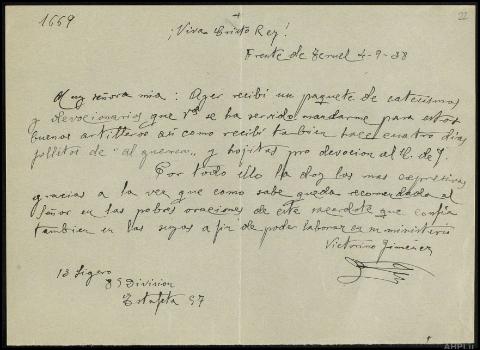 1669
22
+
¡Viva Cristo Rey!
Frente de Teruel 4-9-38
Muy señora mia: Ayer recibí un paquete de catecismos
y devocionarios que Vd se ha servido mandarme para estos
buenos artilleros así como recibí tambien hace cuatro dias
follitos de "al quemar" y hojitas pro devocion al C. de J.
Por todo ello la doy las mas expresivas
gracias a la vez que como sabe queda recomendada al
Señor en las pobres oraciones de este sacerdote que confia
tambien en las suyas a fin de poder laborar en mi ministerio
Victorino Jimenez
13 Ligero
85 Division
Estafeta 97